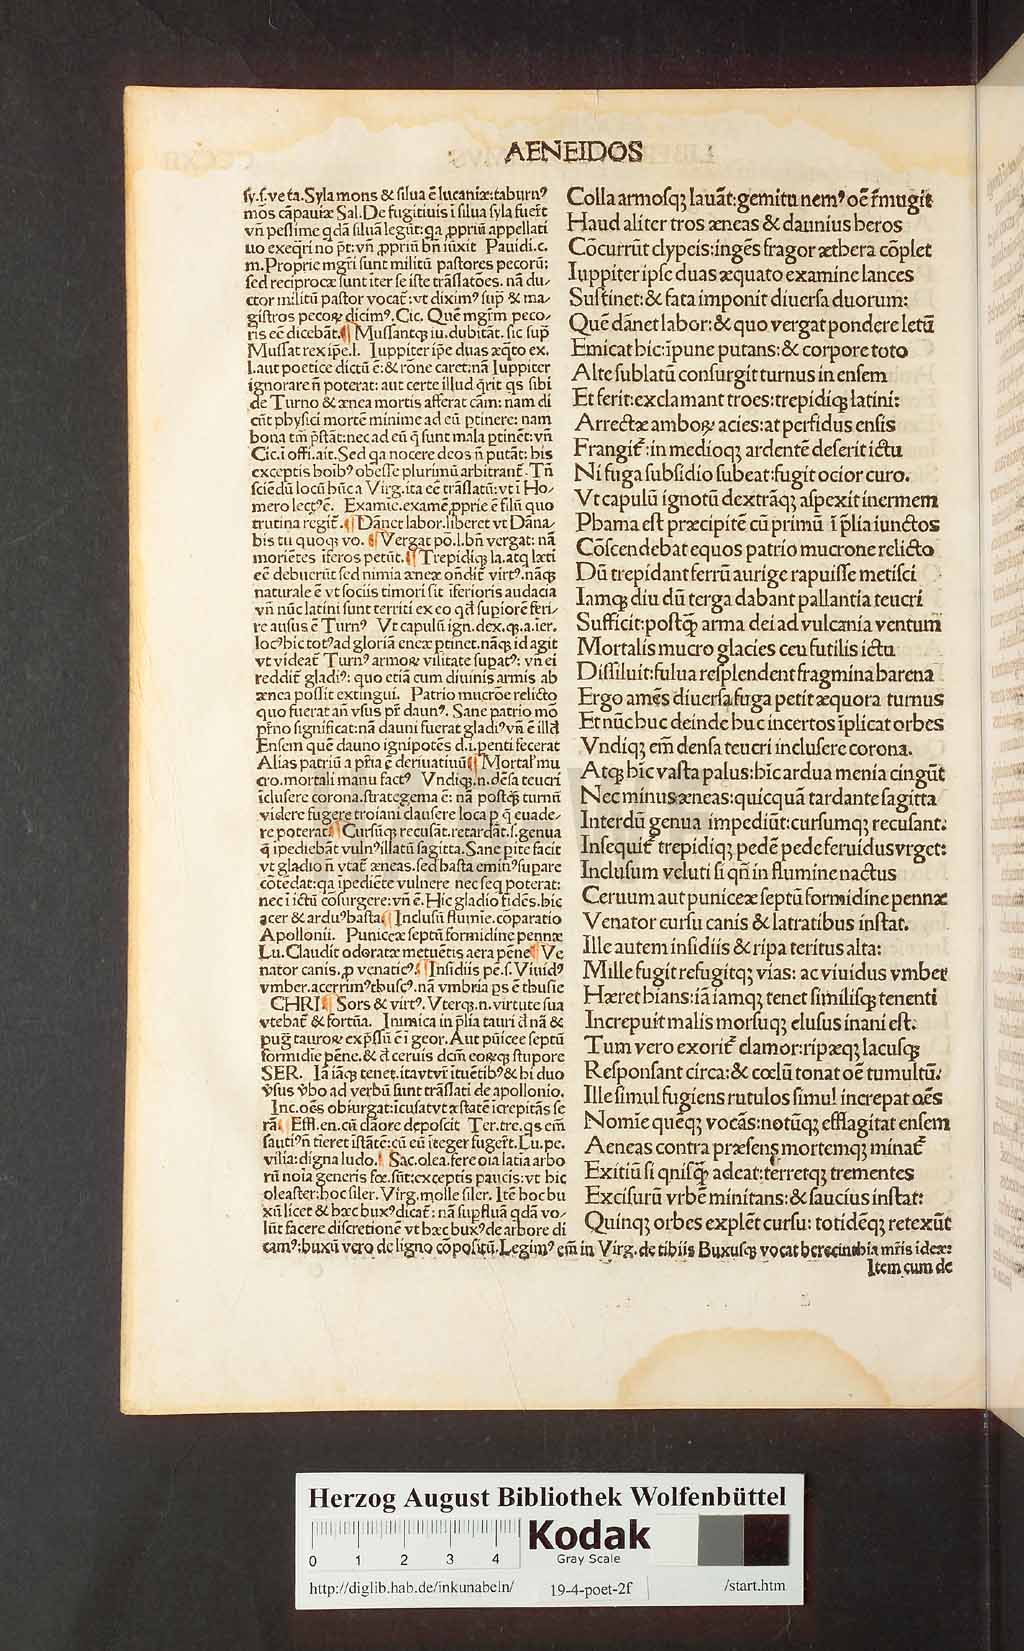 AENEIDOS
sy.s.ve ta. Syla mons & silua ē lucaniæ: taburnꝰ
mos cāpauiæ Sal. De fugitiuis ī silua syla fuerūt
vn̄ pessime qdā siluā legūt: qa ꝓpriū appellati
uo exeqri nō pt̄: vn̄ ꝓpriū bn̄ iūxit Pauidi.c.
m. Proprie mgr̄i sunt militū pastores pecorū:
sed reciprocæ sunt iter se iste trāslatōes. nā du-
ctor militū pastor vocat̄: vt diximꝰ sup̄ & ma-
gistros pecoꝝ dicimꝰ. Cic. Quē mgr̄m peco-
ris eē dicebāt. Mussantqꝫ iu. dubitāt. sic sup̄
Mussat rex ip̄e. l. Iuppiter ip̄e duas æq̄to ex.
l. aut poetice dictū ē: & rōne caret: nā Iuppiter
ignorare n̄ poterat: aut certe illud q̄rit qs sibi
de Turno & ænea mortis afferat cām: nam di
cūt physici mortē minime ad eū ptinere: nam
bona tm̄ p̄stāt: nec ad eū q̄ sunt mala ptinēt: vn̄
Cic. i offi. ait. Sed qa nocere deos n̄ putāt: his
exceptis hoibꝰ obesse plurimū arbitrant̄. Tn̄
sciēdū locū hūc a Virg. ita eē trāslatū: vt ī Ho-
mero lectꝰ ē. Examie. examē ꝓprie ē filū quo
trutina regit̄. Dānet labor. liberet vt Dāna-
bis tu quoqꝫ vo. Vergat pō. l. bn̄ vergat: nā
moriētes īferos petūt. Trepidiqꝫ la. atqꝫ læti
eē debuerūt sed nimia æneæ on̄dit̄ virtꝰ. nāqꝫ
naturale ē vt sociis timori sit īferioris audacia
vn̄ nūc latini sunt territi ex eo qd̄ supiorē feri-
re ausus ē Turnꝰ Vt capulū ign. dex. qꝫ. a. ier.
locꝰ hic totꝰ ad gloriā eneæ ptinet. nāqꝫ id agit
vt videat̄ Turnꝰ armoꝝ vilitate supatꝰ: vn̄ ei
reddit̄ gladiꝰ: quo etiā cum diuinis armis ab
ænea possit extingui. Patrio mucrōe relicto
quo fuerat an̄ vsus pr̄ daunꝰ. Sane patrio mō
pr̄no significat: nā dauni fuerat gladiꝰ vn̄ ē illd̄
Ensem quē dauno ignipotēs d.i. penti fecerat
Alias patriū a pr̄ia ē deriuatiuū Mortal' mu
cro. mortali manu factꝰ Vndiqꝫ. n. dēsa teucri
īclusere corona. strategema ē: nā postqꝫ̄ turnū
videre fugere troiani clausere loca p q̄ euade-
re poterat. Cursūqꝫ recusāt. retardāt. s. genua
q̄ īpediebāt vulnꝰ illatū sagitta. Sane pite facit
vt gladio n̄ vtat̄ æneas. sed hasta eminꝰ supare
cōtēdat: qa īpediēte vulnere nec seq poterat:
nec ī ictū cōsurgere: vn̄ ē. Hic gladio fidēs. hic
acer & arduꝰ hasta Inclusū flumie. cōparatio
Apollonii. Puniceæ septū formidine pennæ
Lu. Claudit odoratæ metuētis aera pēne Ve
nator canis. ꝓ venaticꝰ. Insidiis pe. s. Viuidꝰ
vmber. acerrimꝰ thuscꝰ. nā vmbria ps ē thusie
CHRI Sors & virtꝰ. Vterqꝫ. n. virtute sua
vtebat̄ & fortūa. Inimica in p̄lia tauri d̄ nā &
puḡ tauroꝝ exp̄ssū ē i geor. Aut pūiceæ septū
formidīe pēne. & d̄ ceruis dcm̄ eorqꝫ stupore
SER. Iā iāqꝫ tenet. ita vt vr̄ ituētibꝰ & hi duo
v̄sus v̄bo ad verbū sunt trāslati de apollonio.
Inc. oēs obiurgat: icusat vt æstatē icrepitās se
rā Effl. en. cū clāore deposcit Ter. tre. qs em̄
sautiꝰ n̄ tieret istātē: cū eū iteger fugert. Lu. pe.
vilia: digna ludo. Sac. olea. fere oīa latia arbo
rū noīa generis fœ. sūt: exceptis paucis: vt hic
oleaster: hoc siler. Virg. molle siler. Itē hoc bu
xū licet & hæc buxꝰ dicat̄: nā supfluā qdā vo-
lūt facere discretionē vt hæc buxꝰ de arbore di
camꝰ: buxū vero de ligno cōpositū. Legimꝰ em̄ in Virg. de tibiis Buxusqꝫ vocat berecinthia mr̄is ideæ:
Item cum de
Colla armosqꝫ lauāt: gemitu nemꝰ oē r̄mugit
Haud aliter tros æneas & daunius heros
Cōcurrūt clypeis: ingēs fragor æthera cōplet
Iuppiter ipse duas æquato examine lances
Sustinet: & fata imponit diuersa duorum:
Quē dānet labor: & quo vergat pondere letū
Emicat hic: īpune putans: & corpore toto
Alte sublatū consurgit turnus in ensem
Et ferit: exclamant troes: trepidiqꝫ latini:
Arrectæ amboꝝ acies: at perfidus ensis
Frangit̄: in medioqꝫ ardentē deserit ictu
Ni fuga subsidio subeat: fugit ocior euro.
Vt capulū ignotū dextrāqꝫ aspexit inermem
Phama est præcipitē cū primū ī p̄lia iunctos
Cōscendebat equos patrio mucrone relicto
Dū trepidant ferrū aurige rapuisse metisci
Iamqꝫ diu dū terga dabant pallantia teucri
Sufficit: postqꝫ̄ arma dei ad vulcania ventum
Mortalis mucro glacies ceu futilis ictu
Dissiluit: fulua resplendent fragmina harena
Ergo amēs diuersa fuga petit æquora turnus
Et nūc huc deinde huc incertos īplicat orbes
Vndiqꝫ em̄ densa teucri inclusere corona.
Atqꝫ hīc vasta palus: hīc ardua menia cingūt
Nec minus æneas: quicquā tardante sagitta
Interdū genua impediūt: cursumqꝫ recusant:
Insequit̄ trepidiqꝫ pedē pede feruidus vrget:
Inclusum veluti si qn̄ in flumine nactus
Ceruum aut puniceæ septū formidine pennæ
Venator cursu canis & latratibus instat.
Ille autem insidiis & ripa teritus alta:
Mille fugit refugitqꝫ vias: ac viuidus vmber
Hæret hians: iā iamqꝫ tenet similisqꝫ tenenti
Increpuit malis morsuqꝫ elusus inani est.
Tum vero exorit̄ clamor: ripæqꝫ lacusqꝫ
Responsant circa: & cœlū tonat oē tumultū:
Ille simul fugiens rutulos simul increpat oēs
Nomīe quēqꝫ vocās: notūqꝫ efflagitat ensem
Aeneas contra præsens mortemqꝫ minat̄
Exitiū si qnisqꝫ̄ adeat: terretqꝫ trementes
Excisurū vrbē minitans: & saucius instat:
Quinqꝫ orbes explēt cursu: totidēqꝫ retexūt
Herzog August Bibliothek Wolfenbüttel
0 1 2 3 4
Kodak
Gray Scale
http://diglib.hab.de/inkunabeln/ 19-4-poet-2f /start.htm